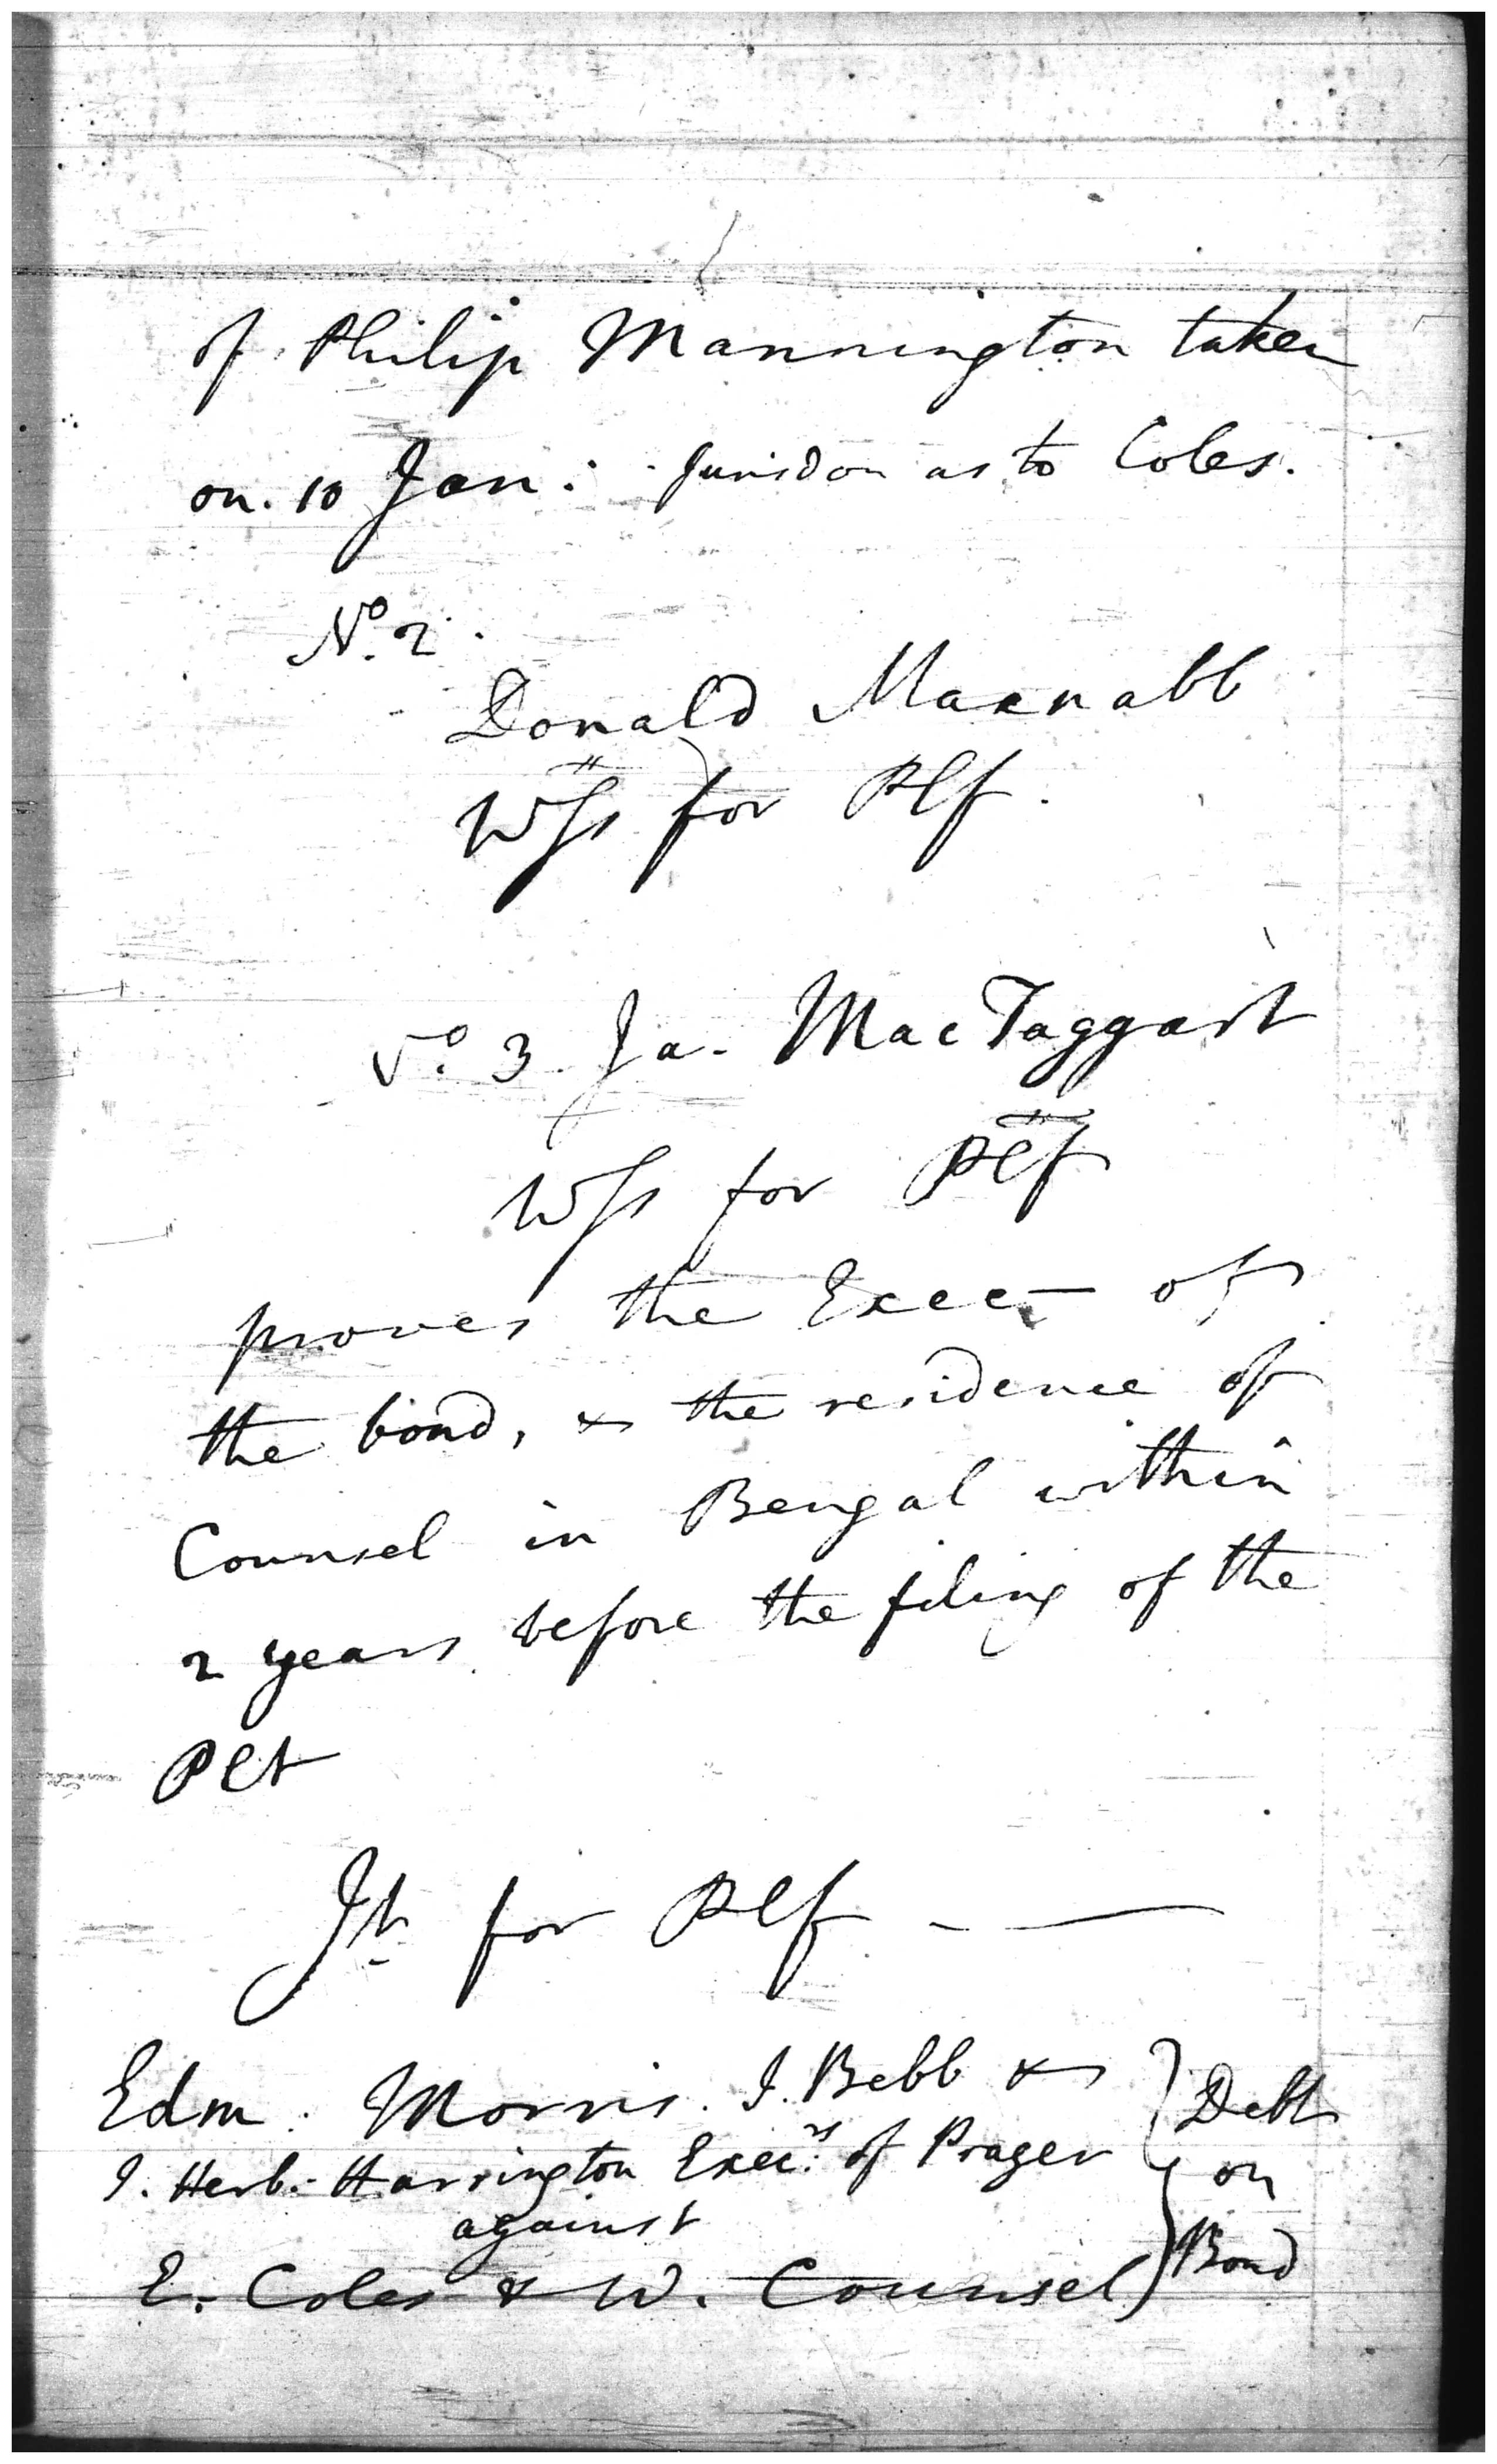 of Philip Mannington taken
on. 10 Jan: Jurisdon as to Coles.
No. 2.
Donald Macnabb
Wss for Plf.
No. 3. Ja. Mac Taggart
Wss for Plf
proves the Execn of
the bond, & the residence of
Counsel in Bengal within
2 years before the filing of the
Plt
Jt. for Plf - —
Edm. Morris. J. Bebb &
J. Herb. Harrington Execrs. of Prager
against
E. Coles & W. Counsel
Debt
on
Bond